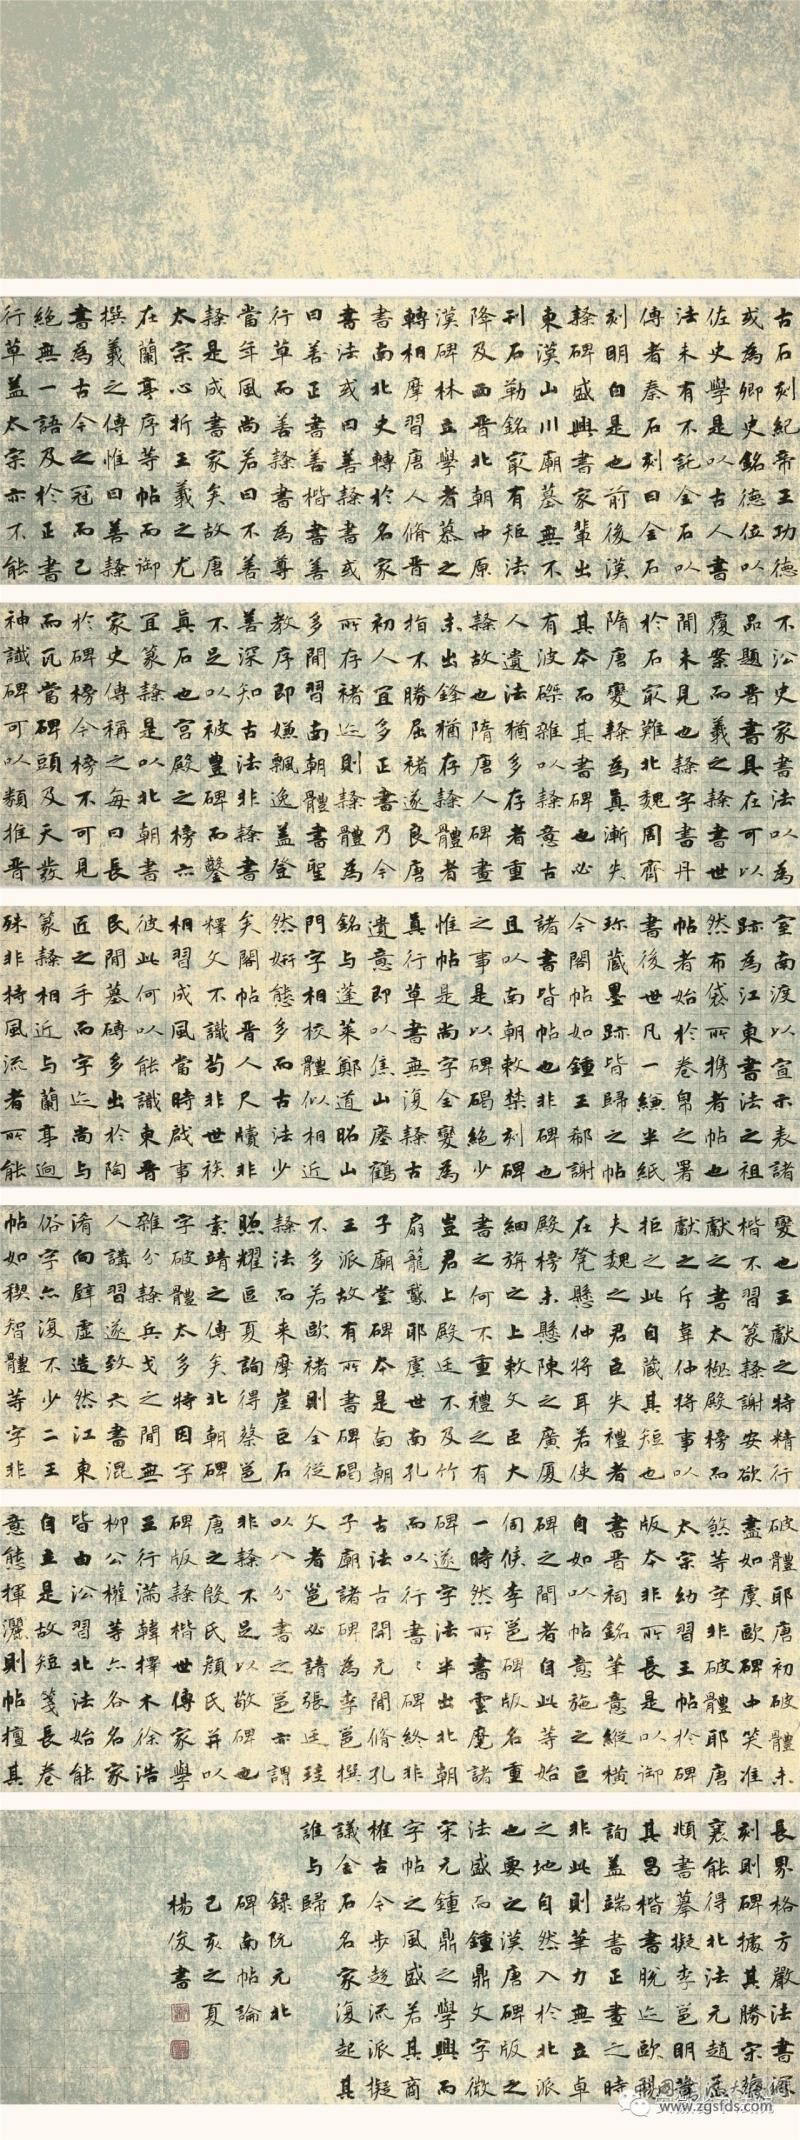 古石刻紀帝王功德
或為卿史銘德位以
佐史學是以古人書
法未有不託金石以
傳者秦石刻曰金石
刻明白是也前後漢
隸碑盛興書家輩出
東漢山川廟墓無不
刊石勒銘最有矩法
降及西晉北朝中原
漢碑林立學者慕之
轉相摩習唐人脩晉
書南北史轉於名家
書法或曰善隸書或
曰善正書善楷書善
行草而善隸書為尊
當年風尚若曰不善
隸是成書家矣故唐
太宗心折王羲之尤
在蘭亭序等帖而御
撰羲之傳惟曰善隸
書為古今之冠而己
絕無一語及於正書
行草蓋太宗亦不能
不㳂史家書法以為
品題晉書具在可以
覆案而羲之隸書世
間未見也隸字書丹
於石最難北魏周齊
隋唐變隸為真漸失
其本而其書碑也必
有波磔雜以隸意古
人遺法猶多存者重
隸故也隋唐人碑畫
未出鋒猶存隸體者
指不勝屈褚遂良唐
初人宜多正書乃今
所存褚迹則隸體為
多間習南朝體書聖
教序即嫌飄逸蓋登
善深知古法非隸書
不足以被豐碑而鑿
真石也宮殿之榜亦
宜篆隸是以北朝書
家史傳稱之每曰長
於碑榜今榜不可見
而瓦當碑頭及天發
神讖碑可以類推晉
室南渡以宣示表諸
跡為江東書法之祖
然布袋所携者帖也
帖者始於卷帛之署
書後世凡一縑半紙
珍藏墨跡皆歸之帖
今閣帖如鍾王郗謝
諸書皆帖也非碑也
且以南朝敕禁刻碑
之事是以碑碣絕少
惟帖是尚字全變為
真行草書無復隸古
遺意即以焦山瘞鶴
銘與蓬萊鄭道昭山
門字相校體似相近
然妍態多而古法少
矣閣帖晉人尺牘非
釋文不識苟非世族
相習成風當時啟事
彼此何以能識東晉
民間墓磚多出於陶
匠之手而字迹尚與
篆隸相近與蘭亭迥
殊非持風流者所能
變也王獻之特精行
楷不習篆隸謝安欲
獻之書太極殿榜而
獻之斥韋仲將事以
拒之此自藏其短也
夫魏之君臣失禮者
在凳懸仲將耳若使
殿榜未懸陳之廣廈
細旃之上敕文臣大
書之何不重禮之有
豈君上殿廷不及竹
扇籠鵞耶虞世南孔
子廟堂碑本是南朝
王派故有所書碑碣
不多若歐褚則全從
隸法而來摩崖巨石
照耀區夏詢得蔡邕
索靖之傳矣北朝碑
字破體太多特因字
雜分隸兵戈之間無
人講習遂致六書混
淆向壁虛造然江東
俗字亦復不少二王
帖如稧智體等字非
破體耶唐初破體未
盡如虞歐碑中笑准
煞等字非破體耶唐
太宗幼習王帖於碑
版本非所長是以御
書晉祠銘筆意縱橫
自如以帖意施之巨
碑之間者自此等始
伺候李邕碑版名重
一時然所書雲麾諸
碑遂字法半出北朝
而以行書々碑終非
古法古開元間脩孔
子廟諸碑為李邕撰
文者邕必請張廷珪
以八分書之邕亦謂
非隸不足以敬碑也
唐之殷氏顏氏并以
碑版隸楷世傳家學
王行滿韓擇木徐浩
柳公權等亦各名家
皆由㳂習北法始能
自立是故短箋長卷
意態揮灑則帖擅其
長界格方嚴法書深
刻則碑據其勝宋蔡
襄能得北法元趙孟
頫書摹擬李邕明董
其昌楷書脫迹歐楊
詢蓋端書正畫之時
非此則華力無立卓
之地自然入於北派
也要之漢唐碑版之
法盛而鐘鼎文字微
宋元鍾鼎之學興而
字帖之風盛若其商
榷古今步趍流派擬
議金石名家復起其
誰與歸
錄阮元北
碑南帖論
己亥之夏
楊俊書
www.zgsfds.com